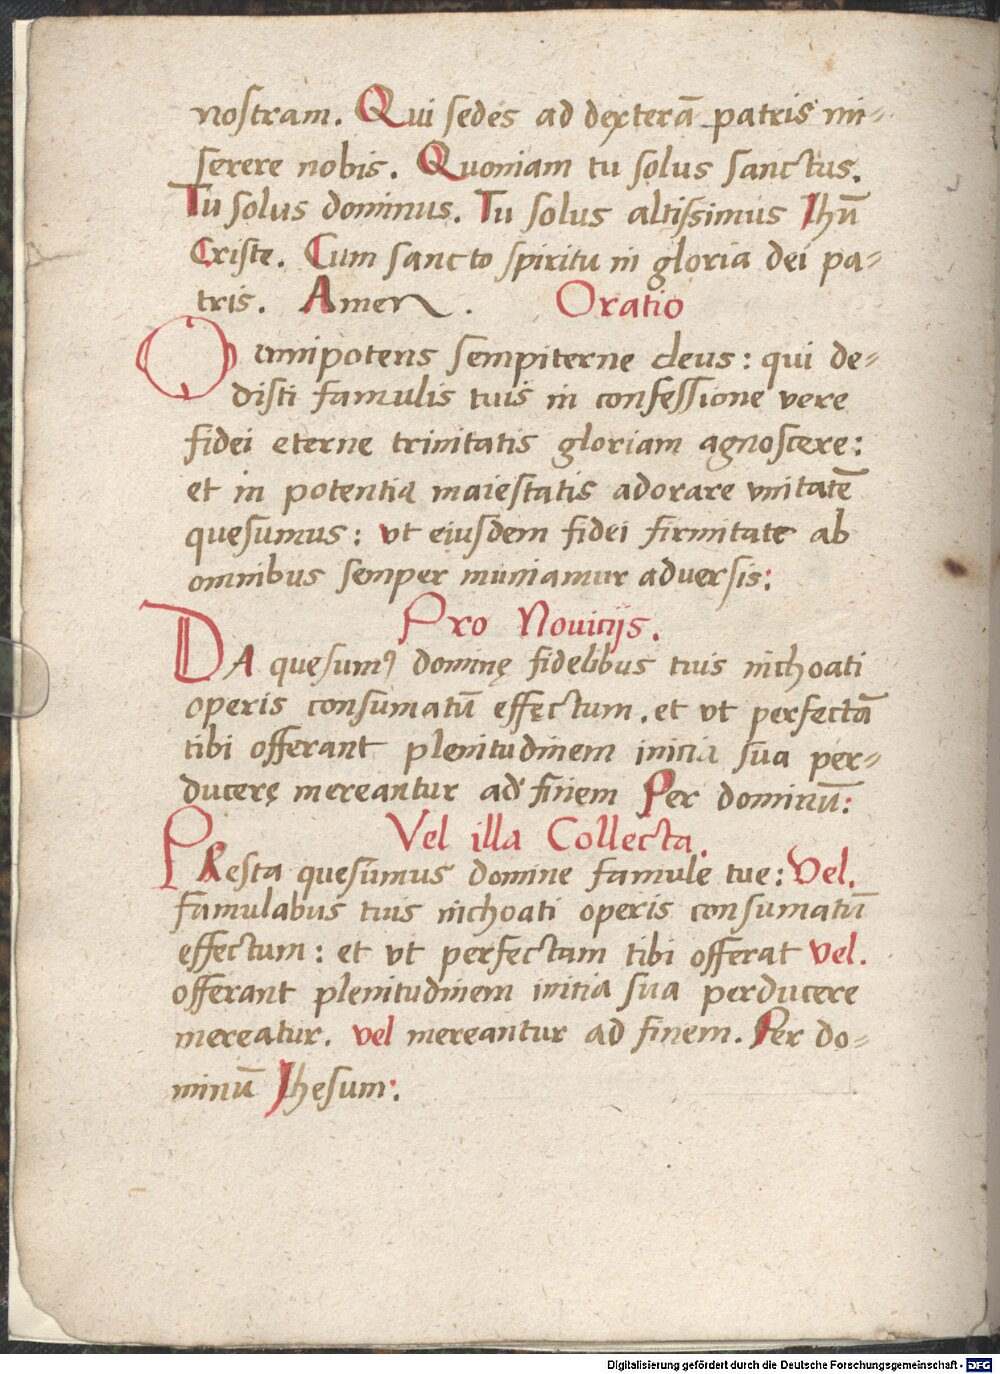 nostram. Qui sedes ad dexterā patris mi-
serere nobis. Quoniam tu solus sanctus.
Tu solus dominus. Tu solus altissimus Jhū
Criste. Cum sancto spiritu in gloria dei pa-
tris. Amen. Oratio
Omnipotens sempiterne deus: qui de-
disti famulis tuis in confessione vere
fidei eterne trinitatis gloriam agnoscere:
et in potentia maiestatis adorare vnitatē
quesumus: vt eiusdem fidei firmitate ab
omnibus semper muniamur aduersis:
Pro Nouicijs.
DA quesumꝰ dominę fidelibus tuis inchoati
operis consumatū effęctum. et vt perfectā
tibi offerant plenitudinem inicia sua per-
ducerę mereantur ad finem Per dominū:
Vel illa Collecta.
PResta quesumus domine famule tue: Vel.
famulabus tuis inchoati operis consumatū
effectum: et vt perfectam tibi offerat vel.
offerant plenitudinem initia sua perducere
mereatur. vel mereantur ad finem. Per do-
minū Jhesum:.
Digitalisierung gefördert durch die Deutsche Forschungsgemeinschaft - DFG